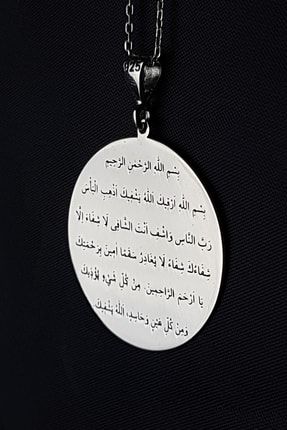 925
بِسْمِ اللهِ الرَّحْمٰنِ الرَّحِيمِ
بِسْمِ اللهِ اَرْقِيكَ اَللهُ يَشْفِيكَ اَذْهِبِ الْبَأْسَ
رَبَّ النَّاسِ وَاشْفِ اَنْتَ الشَّافِى لَا شِفَاءَ اِلَّا
شِفَاءُكَ شِفَاءً لَا يُغَادِرُ سَقَمًا اٰمِينَ بِرَحْمَتِكَ
يَا اَرْحَمَ الرَّاحِمِينَ. مِنْ كُلِّ شَيْءٍ يُؤْذِيكَ
وَمِنْ كُلِّ عَيْنٍ وَحَاسِدٍ، اَللهُ يَشْفِيكَ.